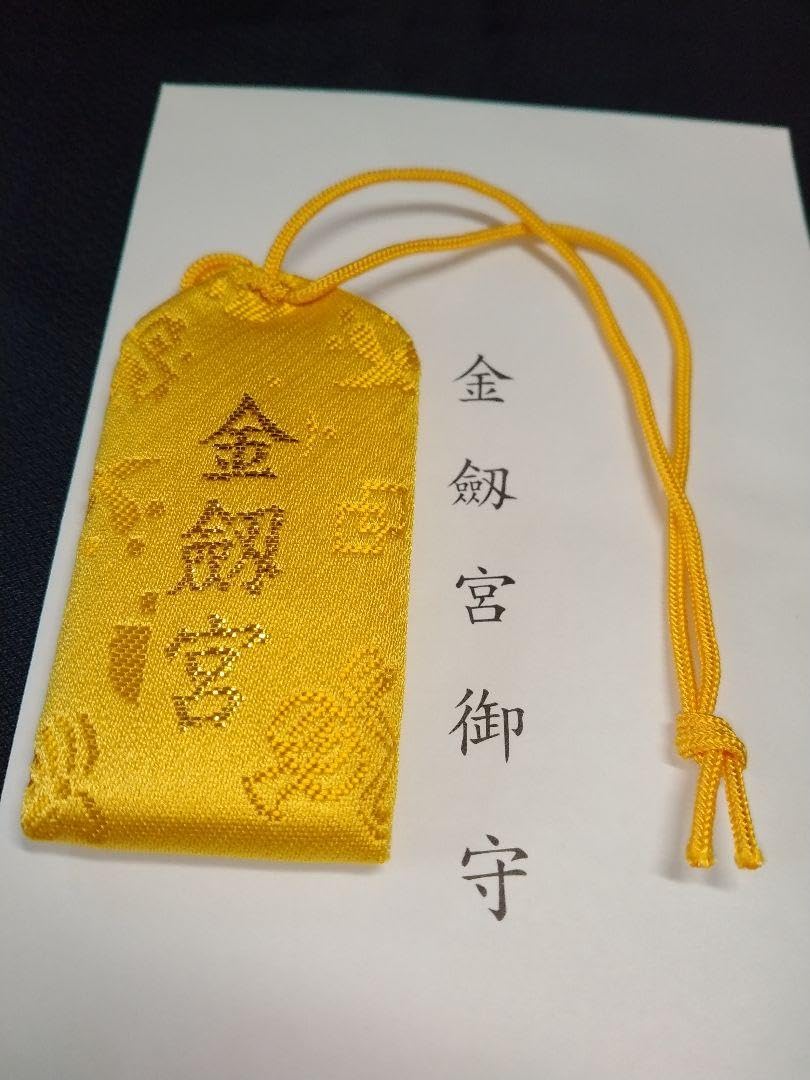 金劔宮
金劔宮御守